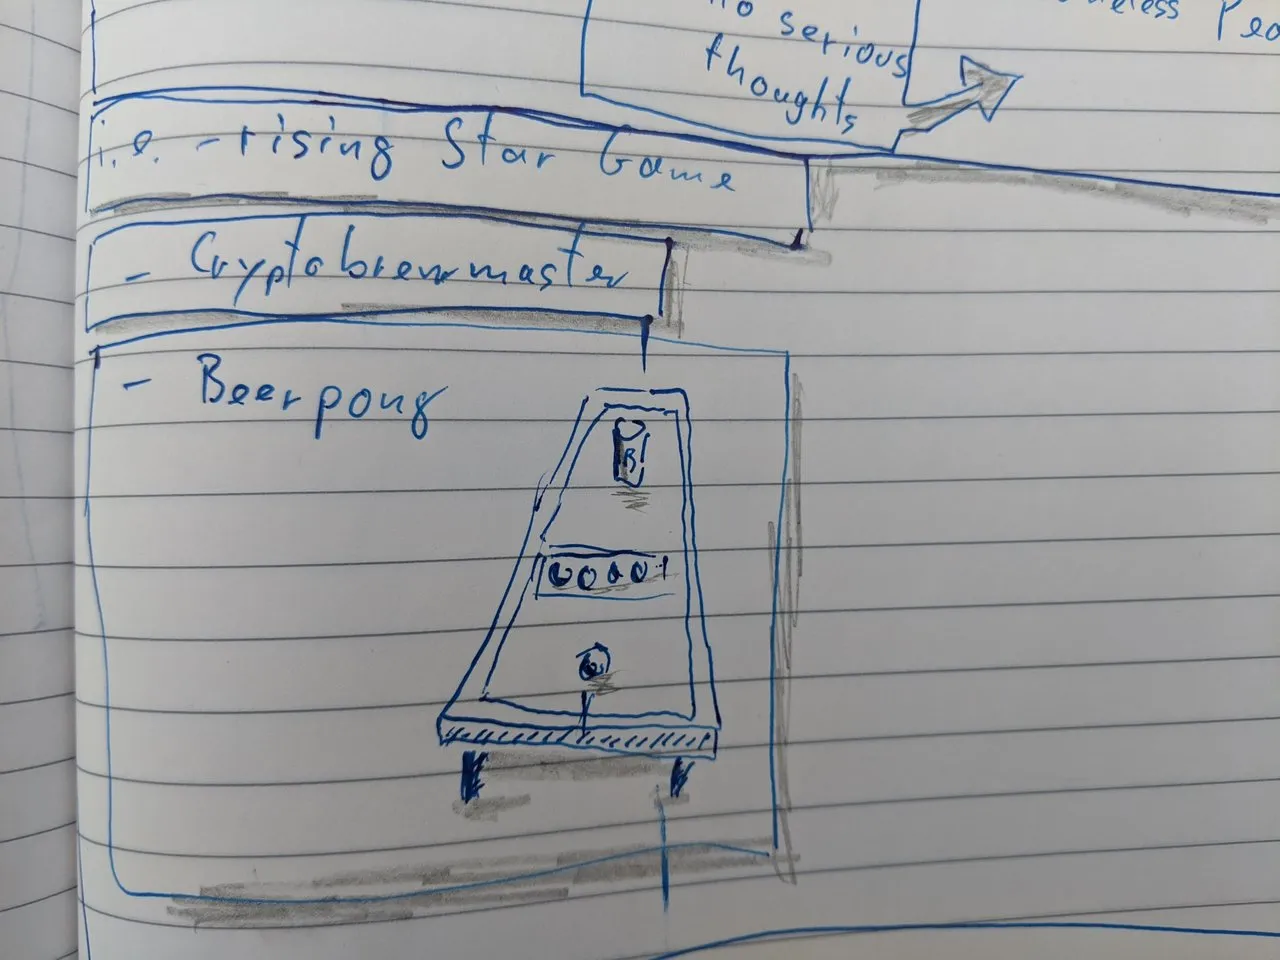 no serious
thoughts
i.e. - rising Star Game
- Cryptobrewmaster
- Beerpong
B